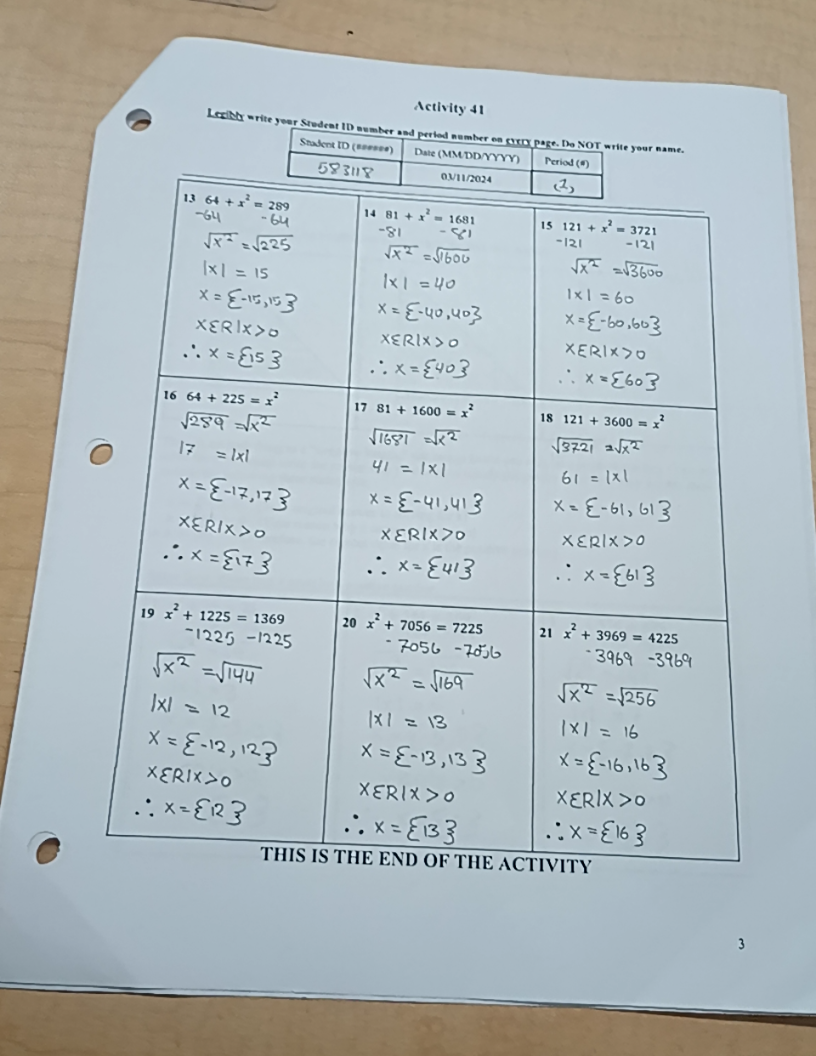 Activity 41
Legibly write your Student ID number and period number on every page. Do NOT write your name.
Student ID (######) Date (MM/DD/YYYY) Period (#)
583118 03/11/2024 (2)
13 64 + x² = 289
-64 -64
√x² = √225
|x| = 15
x = {-15,15}
xεR|x>0
∴ x = {15}
14 81 + x² = 1681
-81 -81
√x² = √1600
|x| = 40
x = {-40,40}
xεR|x>0
∴ x = {40}
15 121 + x² = 3721
-121 -121
√x² = √3600
|x| = 60
x = {-60,60}
xεR|x>0
∴ x = {60}
16 64 + 225 = x²
√289 = √x²
17 = |x|
x = {-17,17}
xεR|x>0
∴ x = {17}
17 81 + 1600 = x²
√1681 = √x²
41 = |x|
x = {-41,41}
xεR|x>0
∴ x = {41}
18 121 + 3600 = x²
√3721 = √x²
61 = |x|
x = {-61,61}
xεR|x>0
∴ x = {61}
19 x² + 1225 = 1369
-1225 -1225
√x² = √144
|x| = 12
x = {-12,12}
xεR|x>0
∴ x = {12}
20 x² + 7056 = 7225
-7056 -7056
√x² = √169
|x| = 13
x = {-13,13}
xεR|x>0
∴ x = {13}
21 x² + 3969 = 4225
-3969 -3969
√x² = √256
|x| = 16
x = {-16,16}
xεR|x>0
∴ x = {16}
THIS IS THE END OF THE ACTIVITY
3